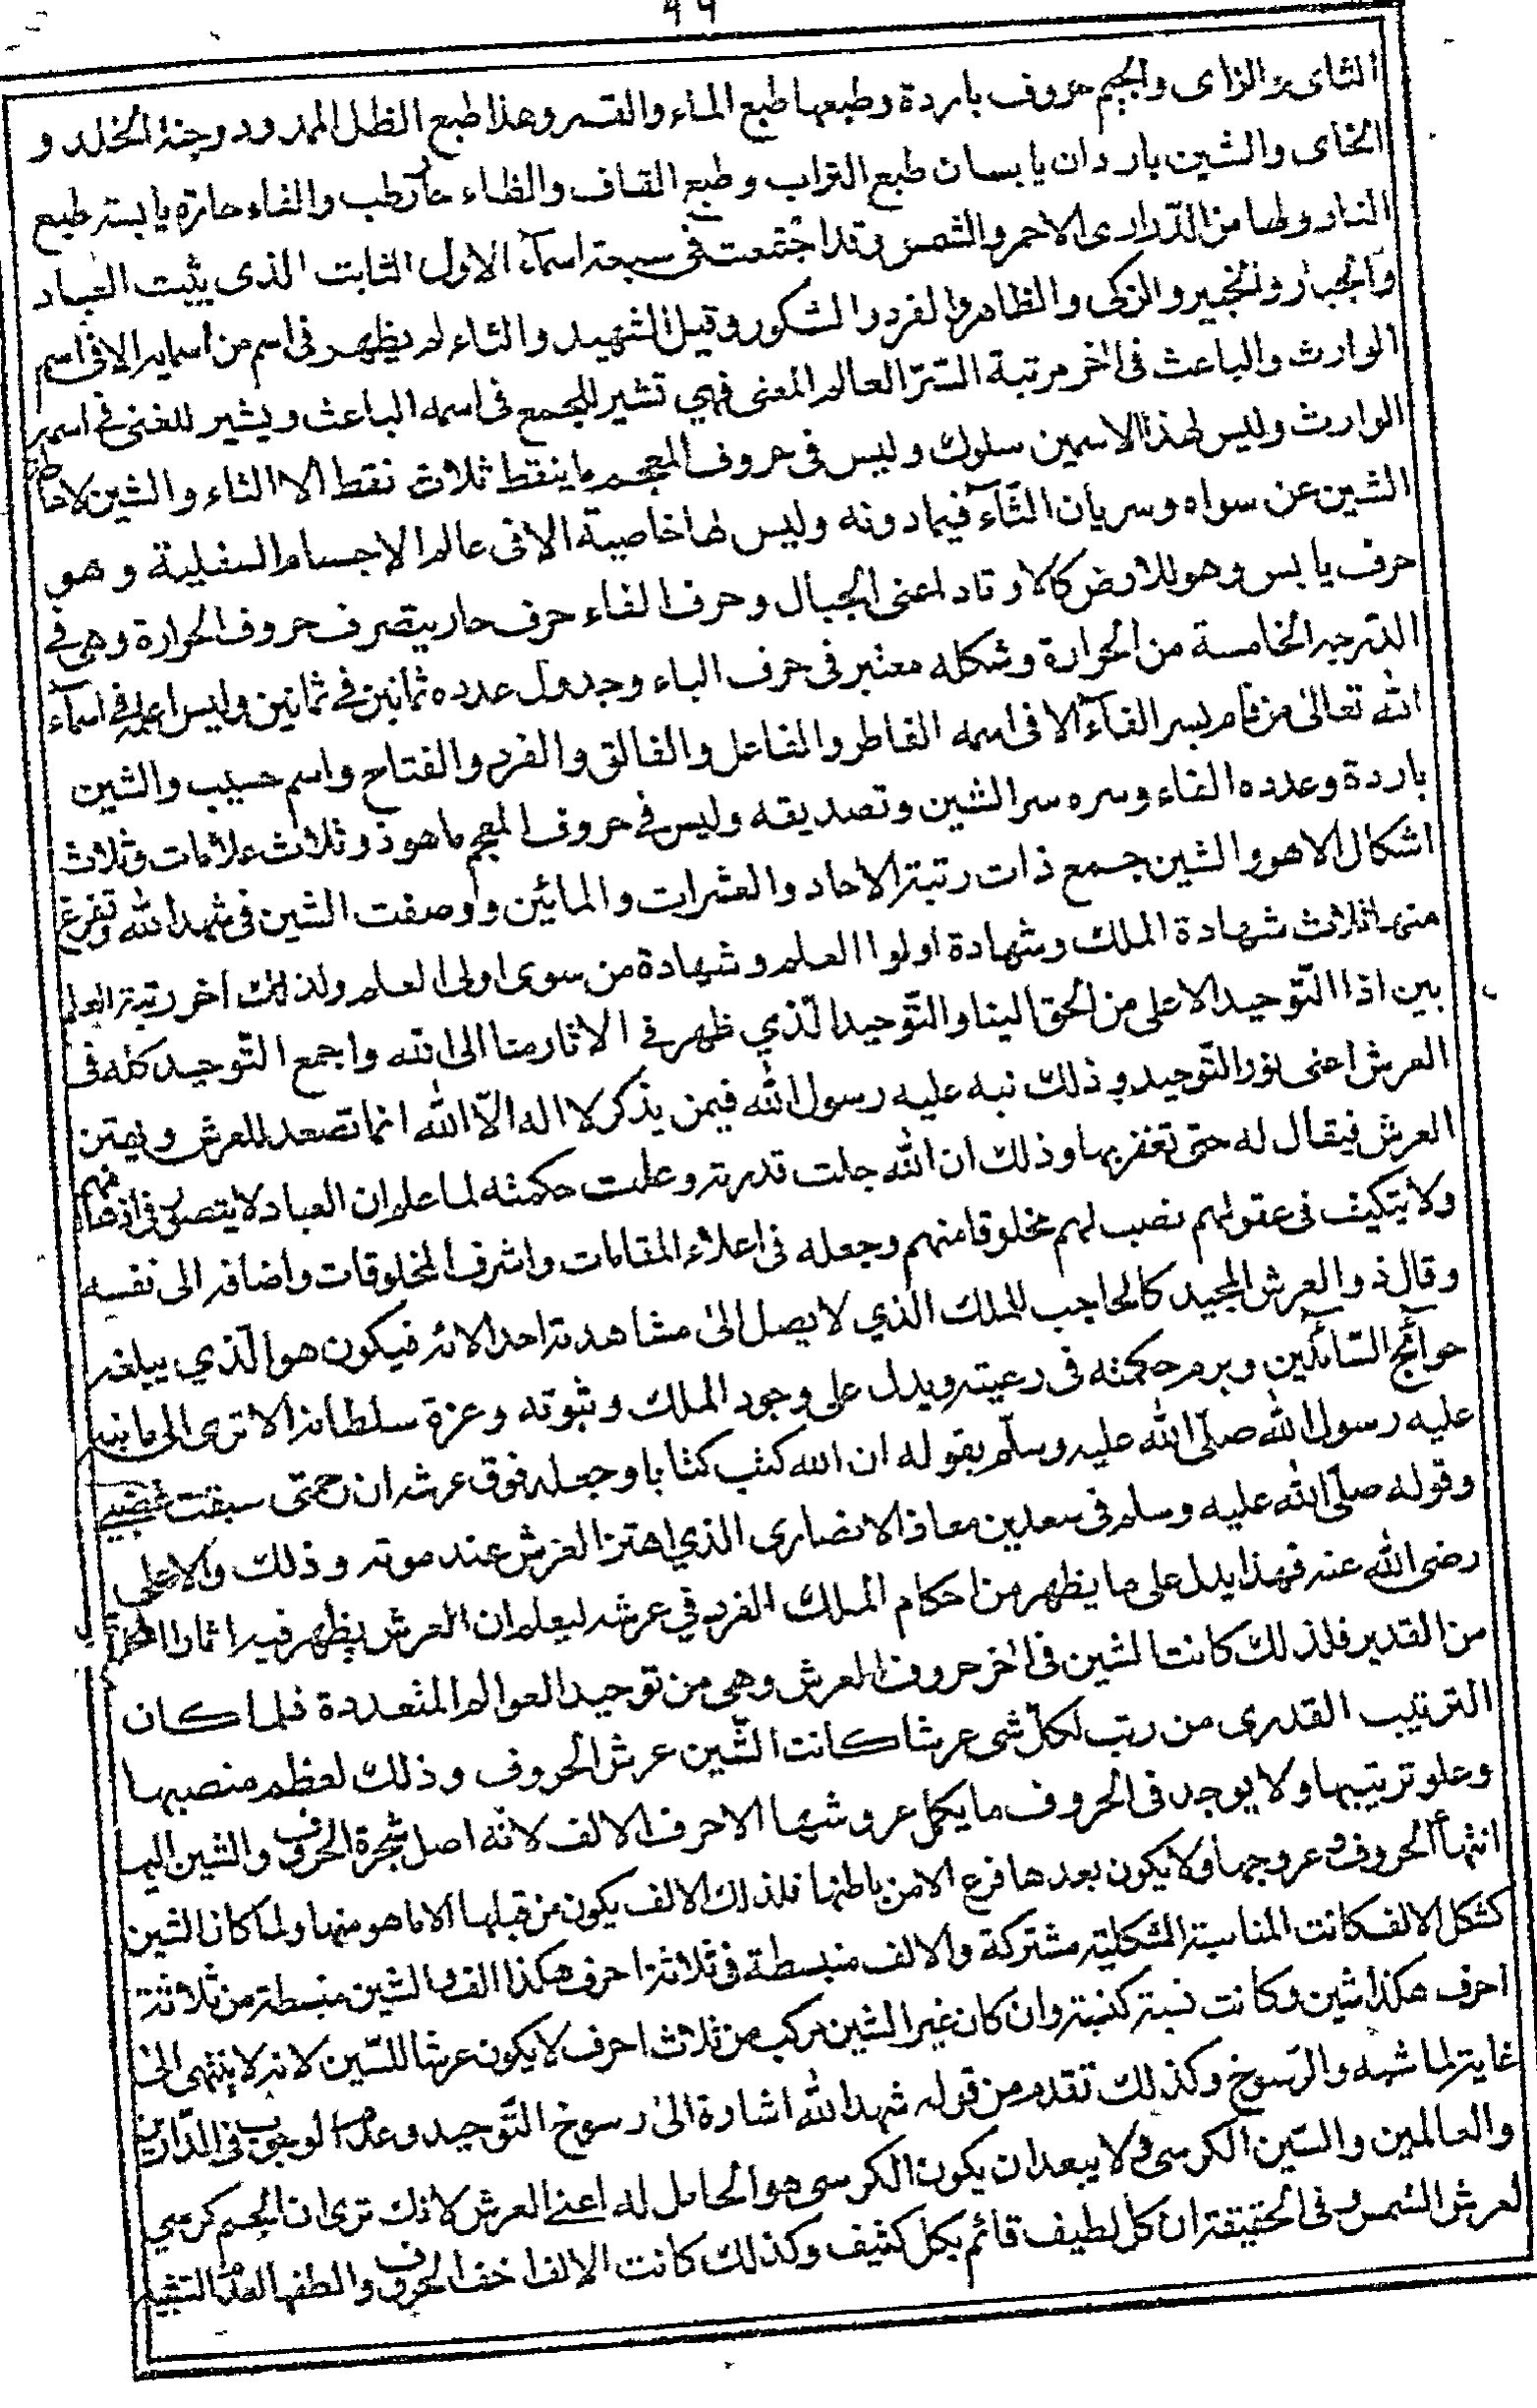 ٩٩
الثاى والزاى والجيم حروف باردة وطبعها طبع الماء والقمر وهذا طبع الظل الممدود وجنة الخلد و
الخاى والشين باردان يابسان طبع التراب وطبع القاف والظاء حار رطب والفاء حارة يابسة طبع
النار ولها من الدرارى الاحمر والشمس وقد اجتمعت فى سبعة اسماء الاول الثابت الذى يثبت العباد
والجبار والخبير والزكى والظاهر والفرد والشكور وقيل الشهيد والثاء لم يظهر فى اسم من اسمايه الا فى اسم
الوارث والباعث فى اخر مرتبة الستر العالم المعنى فهي تشير للجمع فى اسمه الباعث ويشير للغنى فى اسمه
الوارث وليس لهذا الاسمين سلوك وليس فى حروف المعجم ما ينقط ثلاث نقط الا الثاء والشين لاحاطة
الشين عن سواه وسريان الثاء فيما دونه وليس لها خاصية الا فى عالم الاجسام السفلية وهو
حرف يابس وهو للارض كالاوتاد اعنى الجبال وحرف الفاء حرف حار يتصرف حروف الحرارة وهى فى
الدرجه الخامسة من الحرارة وشكله معتبر فى حرف الباء وجدول عدده ثمانين فى ثمانين وليس اعمه فى اسماء
الله تعالى من قام بسر الفاء الا فى اسمه الفاطر والفاعل والفالق والفرد والفتاح واسم حسيب والشين
باردة وعدده الفاء وسره سر الشين وتصديقه وليس فى حروف المعجم ما هو ذو ثلاث علامات وثلاث
اشكال الا هو والشين جمع ذات رتبة الاحاد والعشرات والمائين ووصفت الشين فى شهد الله وتفرغ
منها ثلاث شهادة الملك وشهادة اولوا العلم وشهادة من سوى اولى العلم ولذلك اخر رتبة العلم
بين اذا التوحيد الاعلى من الحق الينا والتوحيد الذي ظهر فى الاثار منا الى الله واجمع التوحيد كله فى
العرش اعنى نور التوحيد وذلك نبه عليه رسول الله فيمن يذكر لا اله الا الله انما تصعد للعرش ويهتز
العرش فيقال له حتى تغفر بها وذلك ان الله جلت قدرته وعلت حكمته لما علم ان العباد لا يتصل فى اذهانهم
ولا يتكيف فى عقولهم نصب لهم مخلوقا منهم وجعله فى اعلاء المقامات واشرف المخلوقات واضافه الى نفسه
وقال ذو العرش المجيد كالحاجب للملك الذي لا يصل الى مشاهدته احد الا به فيكون هو الذي يبلغه
حوائج السائلين ويرم حكمته فى رعيته ويدل على وجود الملك وثبوته وعزة سلطانه الا ترى الى ما نبه
عليه رسول الله صلى الله عليه وسلم بقوله ان الله كتب كتابا وجعله فوق عرشه ان رحمتى سبقت غضبي
وقوله صلى الله عليه وسلم فى سعد بن معاذ الانصارى الذي اهتز العرش عند موته وذلك والاعلى
رضى الله عنه فهذا يدل على ما يظهر من احكام الملك الفرد في عرشه ليعلم ان العرش يظهر فيه اثار
من القدير فلذلك كانت الشين فى اخر حروف العرش وهى من توحيد العوالم المتعددة فلما كان
الترتيب القدرى من رتب لكل شى عرشا كانت الشين عرش الحروف وذلك لعظم منصبها
وعلو ترتيبها ولا يوجد فى الحروف ما يكمل عروشها الا حرف الالف لانه اصل شجرة الحروف والشين اليها
انتهأ الحروف وعروجها ولا يكون بعدها فرع الا من باطنها فلذلك الالف يكون من قبلها الا ما هو منها ولما كان الشين
كشكل الالف كانت المناسبة الشكلية مشتركة والالف منبسطة فى ثلاثة احرف هكذا الف والشين منبسطة من ثلاثة
احرف هكذا شين وكانت نسبة كنسبة وان كان غير الشين مركب من ثلاث احرف لا يكون عرشا للشين لانه لا ينتهى الى
غاية لما شبه والرسوخ وكذلك تقدم من قوله شهد الله اشارة الى رسوخ التوحيد وعدم الوجوب فى الدارين
والعالمين والسين الكرسى ولا يبعد ان يكون الكرسى هو الحامل له اعنى العرش لانك ترى ان الجسم كرسي
لعرش الشمس وفى الحقيقة ان كل لطيف قائم بكل كثيف وكذلك كانت الالف اخف الحروف والطفها لعدم التشبيه